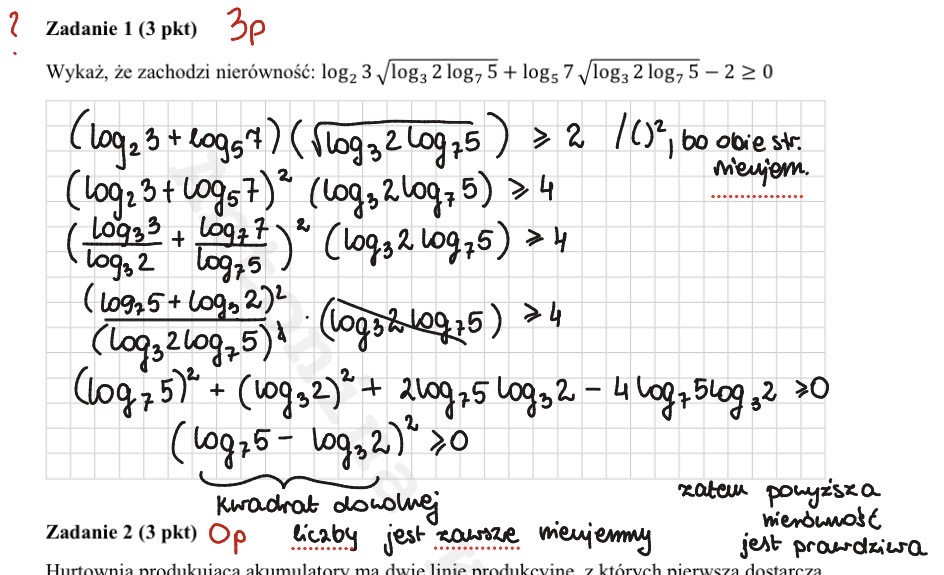 ? Zadanie 1 (3 pkt) 3p
Wykaż, że zachodzi nierówność: log₂ 3 √(log₃ 2 log₇ 5) + log₅ 7 √(log₃ 2 log₇ 5) − 2 ≥ 0
(log₂3 + log₅7)(√(log₃2 log₇5)) ⩾ 2 /()², bo obie str.
nieujem.
(log₂3 + log₅7)² (log₃2 log₇5) ⩾ 4
(log₃3/log₃2 + log₇7/log₇5)² (log₃2 log₇5) ⩾ 4
(log₇5 + log₃2)²/(log₃2 log₇5)² · (log₃2 log₇5) ⩾ 4
(log₇5)² + (log₃2)² + 2log₇5 log₃2 − 4 log₇5 log₃2 ⩾ 0
(log₇5 − log₃2)² ⩾ 0
kwadrat dowolnej
liczby jest zawsze nieujemny
zatem powyższa
nierówność
jest prawdziwa
Zadanie 2 (3 pkt) 0p
Hurtownia produkująca akumulatory ma dwie linie produkcyjne, z których pierwsza dostarcza